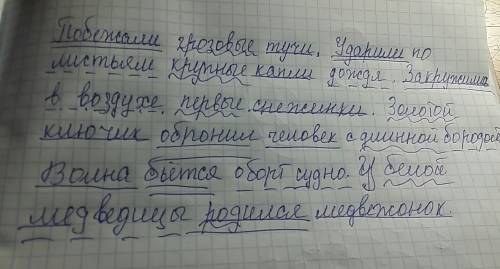 Побежали грозовые тучи. Ударили по
листьям крупные капли дождя. Закружили
в воздухе первые снежинки. Золотой
ключик обронил человек с длинной бородой
Волна бьётся оборт судно. У белой
медведицы родился медвежонок.